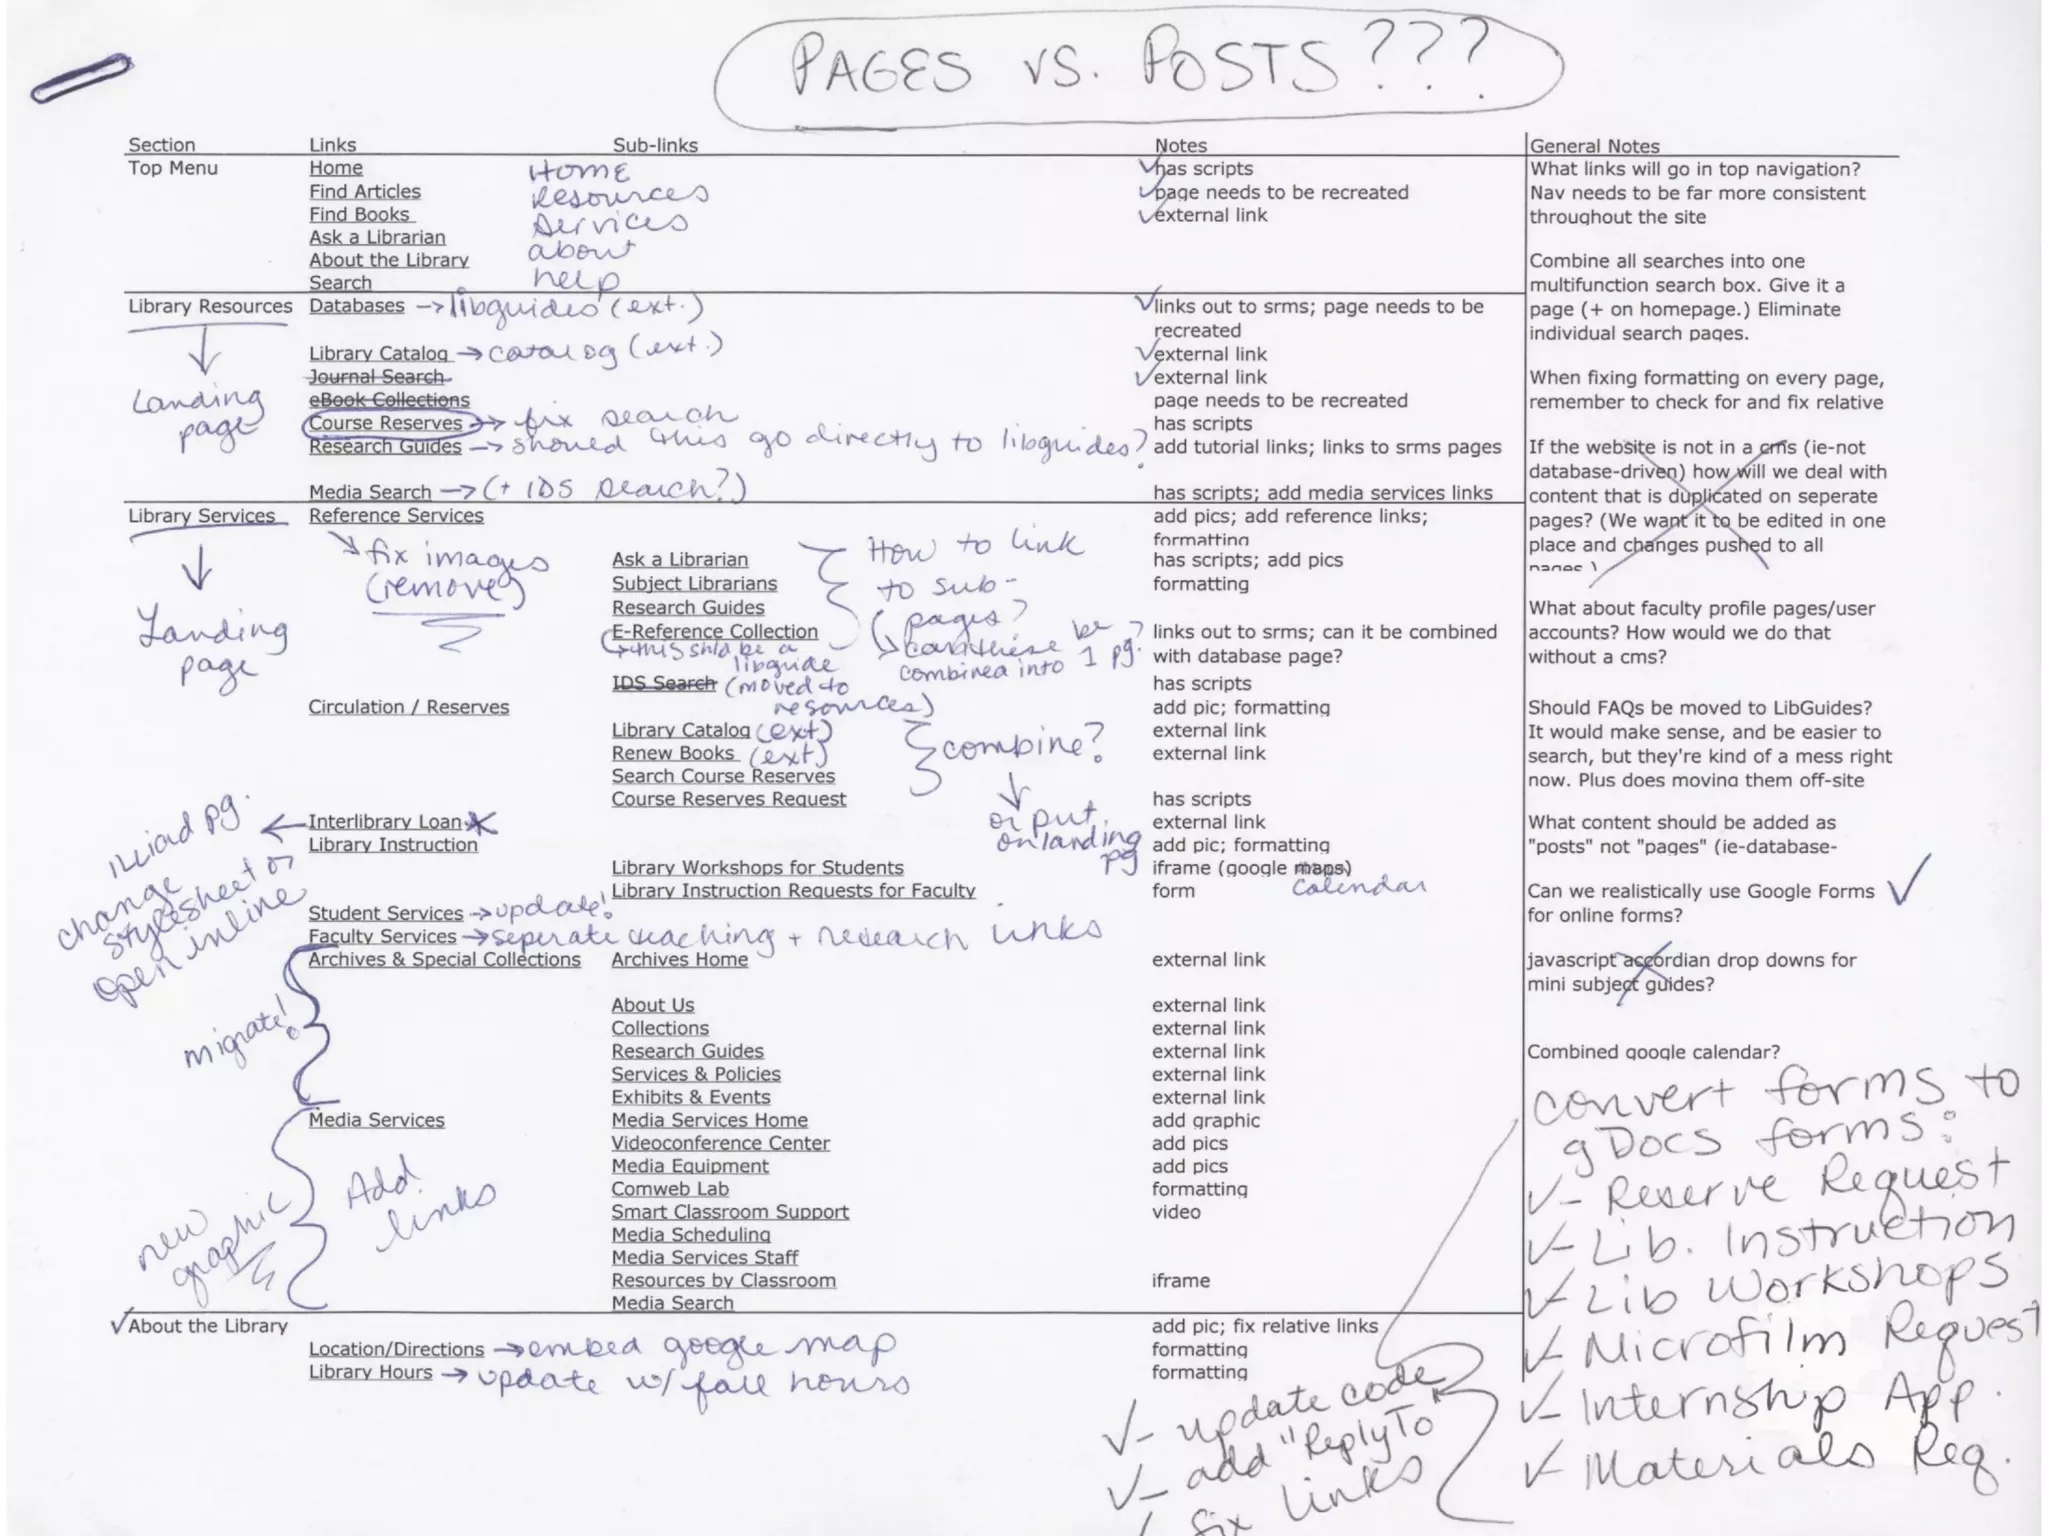 PAGES VS. POSTS???
Section Links Sub-links Notes General Notes
Top Menu Home HOME has scripts What links will go in top navigation?
Find Articles Resources page needs to be recreated Nav needs to be far more consistent
Find Books Services external link throughout the site
Ask a Librarian about
About the Library help Combine all searches into one
Search multifunction search box. Give it a
Library Resources Databases → libguides (ext.) links out to srms; page needs to be page (+ on homepage.) Eliminate
recreated individual search pages.
Library Catalog → catalog (ext.) external link
Journal Search external link When fixing formatting on every page,
Landing eBook Collections page needs to be recreated remember to check for and fix relative
page Course Reserves → fix search has scripts
Research Guides → should this go directly to libguides? add tutorial links; links to srms pages If the website is not in a cms (ie-not
database-driven) how will we deal with
Media Search → (+ IDS search?) has scripts; add media services links content that is duplicated on seperate
Library Services Reference Services add pics; add reference links; pages? (We want it to be edited in one
formatting place and changes pushed to all
pages.)
fix images Ask a Librarian How to link has scripts; add pics
(remove) Subject Librarians to sub- formatting
Landing Research Guides pages? What about faculty profile pages/user
page E-Reference Collection can these be links out to srms; can it be combined accounts? How would we do that
this shld be a libguide combined into 1 pg.? with database page? without a cms?
IDS Search (moved to resources) has scripts
Circulation / Reserves add pic; formatting Should FAQs be moved to LibGuides?
Library Catalog (ext) external link It would make sense, and be easier to
Renew Books (ext) combine? external link search, but they're kind of a mess right
Search Course Reserves now. Plus does moving them off-site
Course Reserves Request or put on landing pg has scripts
ILLiad pg. change stylesheet or open inline ← Interlibrary Loan external link What content should be added as
Library Instruction add pic; formatting "posts" not "pages" (ie-database-
Library Workshops for Students iframe (google maps) calendar
Library Instruction Requests for Faculty form Can we realistically use Google Forms
Student Services → update! for online forms?
Faculty Services → seperate teaching + research links
migrate! Archives & Special Collections Archives Home external link javascript accordian drop downs for
mini subject guides?
About Us external link
Collections external link
Research Guides external link Combined google calendar?
Services & Policies external link
Exhibits & Events external link
Media Services Media Services Home add graphic
Videoconference Center add pics
new graphic Add links Media Equipment add pics
Comweb Lab formatting
Smart Classroom Support video
Media Scheduling
Media Services Staff
Resources by Classroom iframe
Media Search
About the Library add pic; fix relative links
Location/Directions → embed google map formatting
Library Hours → update w/ fall hours formatting
convert forms to
gDocs forms:
- Reserve Request
- Lib. Instruction
- Lib Workshops
- Microfilm Request
- Internship App.
- Materials Req.
- update code
- add "ReplyTo"
fix links